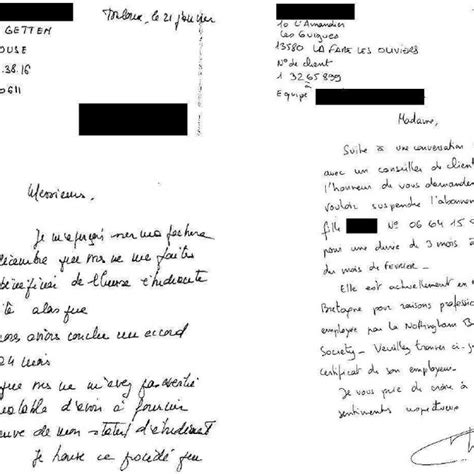 GETTEM
OUSE
.38.16
0611
Toulouse, le 21 janvier
Messieurs,
Je m'aperçois sur ma facture
décembre que vous ne me faites
bénéficier de l'heure étudiante
alors que
nous avions conclu un accord
24 mois
que vous ne m'avez pas averti
préalable d'avoir à fournir
preuve de mon statut d'étudiant
Je trouve ce procédé peu
10 L'Amandier
Les Guigues
13580 LA FARE LES OLIVIERS
N° de client
1 3265899
Equipe
Madame,
Suite à une conversation
avec un conseiller de client
l'honneur de vous demander
vouloir suspendre l'abonnem
fille N° 06 64 15
pour une durée de 3 mois à
du mois de février -
Elle est actuellement en
Bretagne pour raisons profession
employée par la Nottingham B
Society - Veuillez trouver ci-j
certificat de son employeur.
Je vous prie de croire à
sentiments respectueux